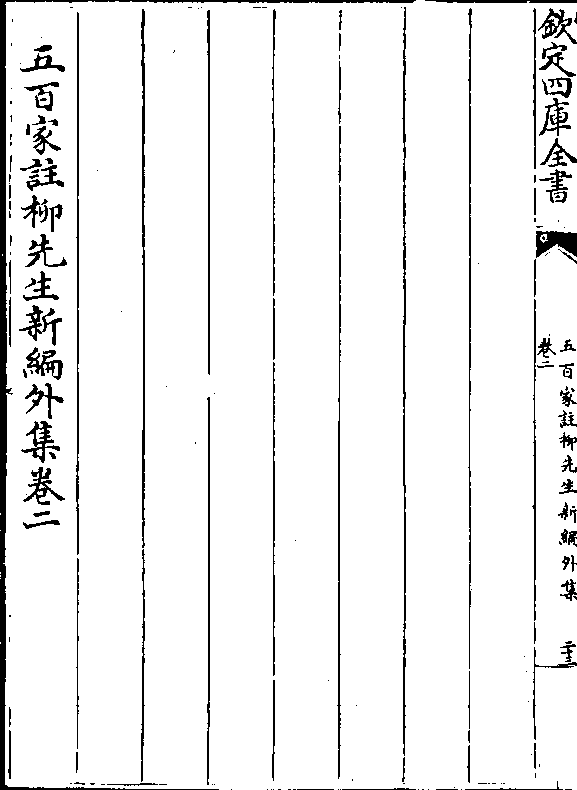 欽定四庫全書
五百家註柳先生新編外集
卷二
二十三
五百家註柳先生新編外集卷二